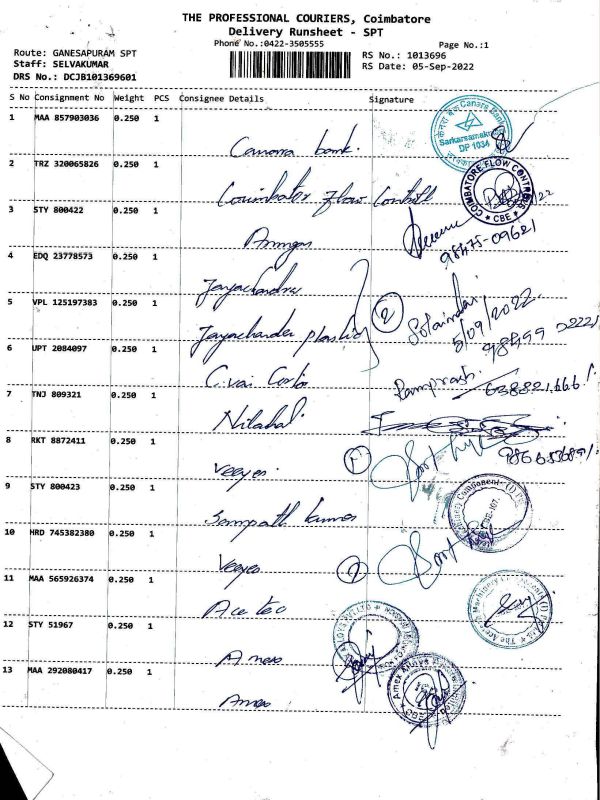 THE PROFESSIONAL COURIERS, Coimbatore
Delivery Runsheet - SPT
Phone No.:0422-3505555
Page No.:1
Route: GANESAPURAM SPT
Staff: SELVAKUMAR
DRS No.: DCJB101369601
RS No.: 1013696
RS Date: 05-Sep-2022
S No Consignment No Weight PCS Consignee Details Signature
1 MAA 857903036 0.250 1
Canara bank.
Canara Bank
Sarkarsamakulam
DP 1034
2 TRZ 320065826 0.250 1
Coimbator Flow Controll
COIMBATORE FLOW CONTROLS
* CBE *
3 STY 800422 0.250 1
98475-09621
4 EDQ 23778573 0.250 1
Jayachandra
5 VPL 125197383 0.250 1
Jayachander plastic
2
5/09/2022
6 UPT 2084097 0.250 1
7 TNJ 809321 0.250 1
Nilahal
8 RKT 8872411 0.250 1
Veeyes
9 STY 800423 0.250 1
Sampath Kumar
10 HRD 745382380 0.250 1
Veeyes
11 MAA 565926374 0.250 1
Ace tec
12 STY 51967 0.250 1
Amex
13 MAA 292080417 0.250 1
Amex
Amex Alloys